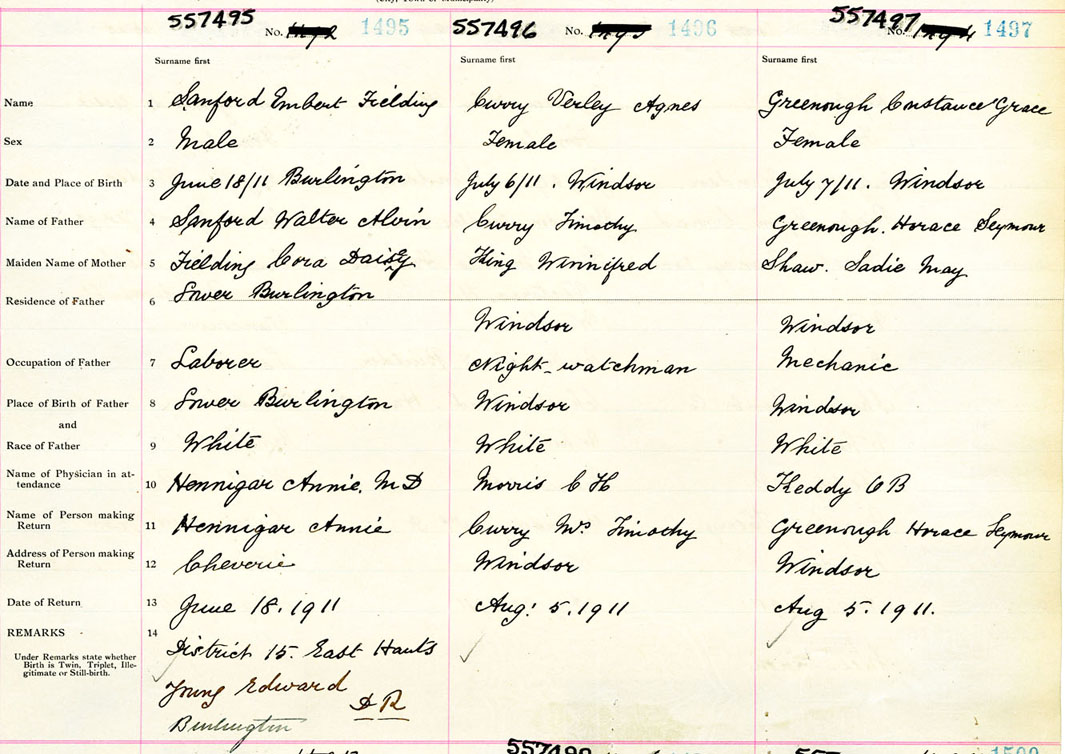 (City, Town or Municipality)
557495 No. 1495
557496 No. 1496
557497 No. 1497
Surname first Surname first Surname first
Name 1 Sanford Embert Fielding Curry Verley Agnes Greenough Constance Grace
Sex 2 Male Female Female
Date and Place of Birth 3 June 18/11 Burlington July 6/11. Windsor July 7/11. Windsor
Name of Father 4 Sanford Walter Alvin Curry Timothy Greenough. Horace Seymour
Maiden Name of Mother 5 Fielding Cora Daisy King Winnifred Shaw. Sadie May
Residence of Father 6 Lower Burlington Windsor Windsor
Occupation of Father 7 Laborer Night-watchman Mechanic
Place of Birth of Father 8 Lower Burlington Windsor Windsor
and
Race of Father 9 White White White
Name of Physician in at-
tendance 10 Hennigar Annie. M D Morris C H Keddy O B
Name of Person making
Return 11 Hennigar Annie Curry Mrs Timothy Greenough Horace Seymour
Address of Person making
Return 12 Cheverie Windsor Windsor
Date of Return 13 June 18. 1911 Aug: 5. 1911 Aug 5. 1911.
REMARKS 14 District 15. East Hants
Under Remarks state whether
Birth is Twin, Triplet, Ille-
gitimate or Still-birth.
Young Edward D R
Burlington